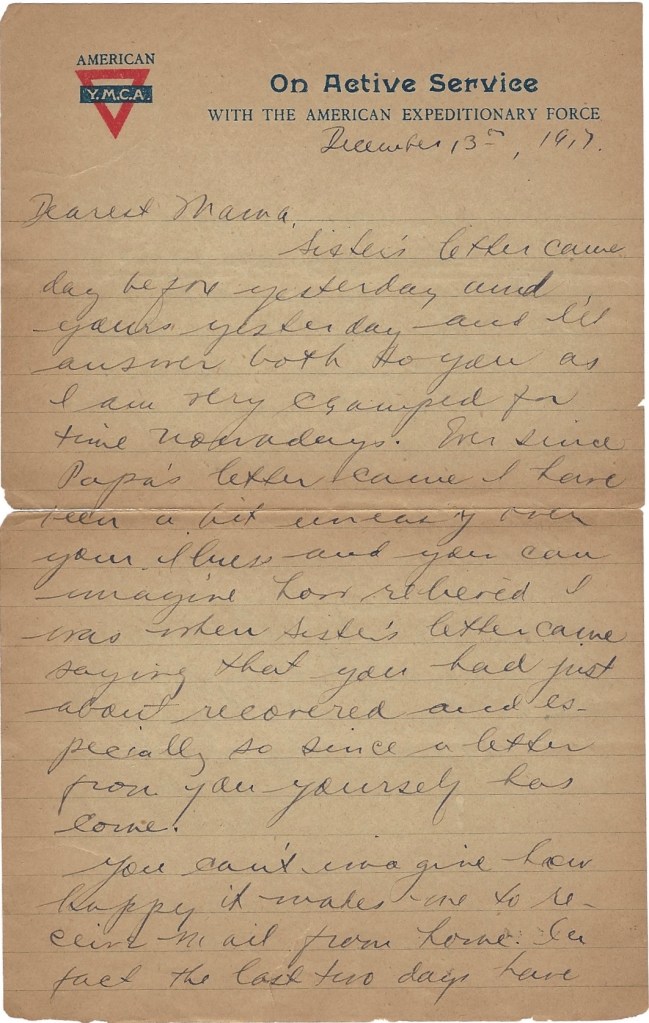 AMERICAN
Y.M.C.A.
On Active Service
WITH THE AMERICAN EXPEDITIONARY FORCE
December 13th, 1917.
Dearest Mama,
Sister's letter came
day before yesterday and
yours yesterday and I'll
answer both to you as
I am very cramped for
time nowadays. Ever since
Papa's letter came I have
been a bit uneasy over
your illness and you can
imagine how relieved I
was when sister's letter came
saying that you had just
about recovered and es-
pecially so since a letter
from you yourself has
come.
You can't imagine how
happy it makes me to re-
ceive mail from home. In
fact the last two days have